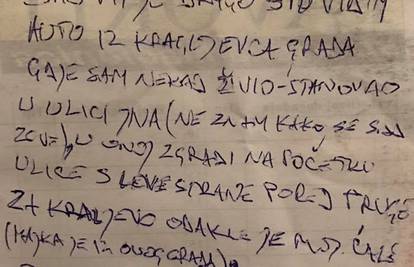 DRAGO STO VIDIM
AUTO IZ KRAGUJEVCA GRADA
GDJE SAM NEKAD ŽIVIO-STANOVAO
U ULICI JNA (NE ZNAM KAKO SE SAD
ZOVE), U ONOJ ZGRADI NA POČETKU
ULICE S LEVE STRANE PORED PRUGE
ZA KRALJEVO ODAKLE JE MOJ ĆALE
(MAJKA JE IZ OVOG GRADA).